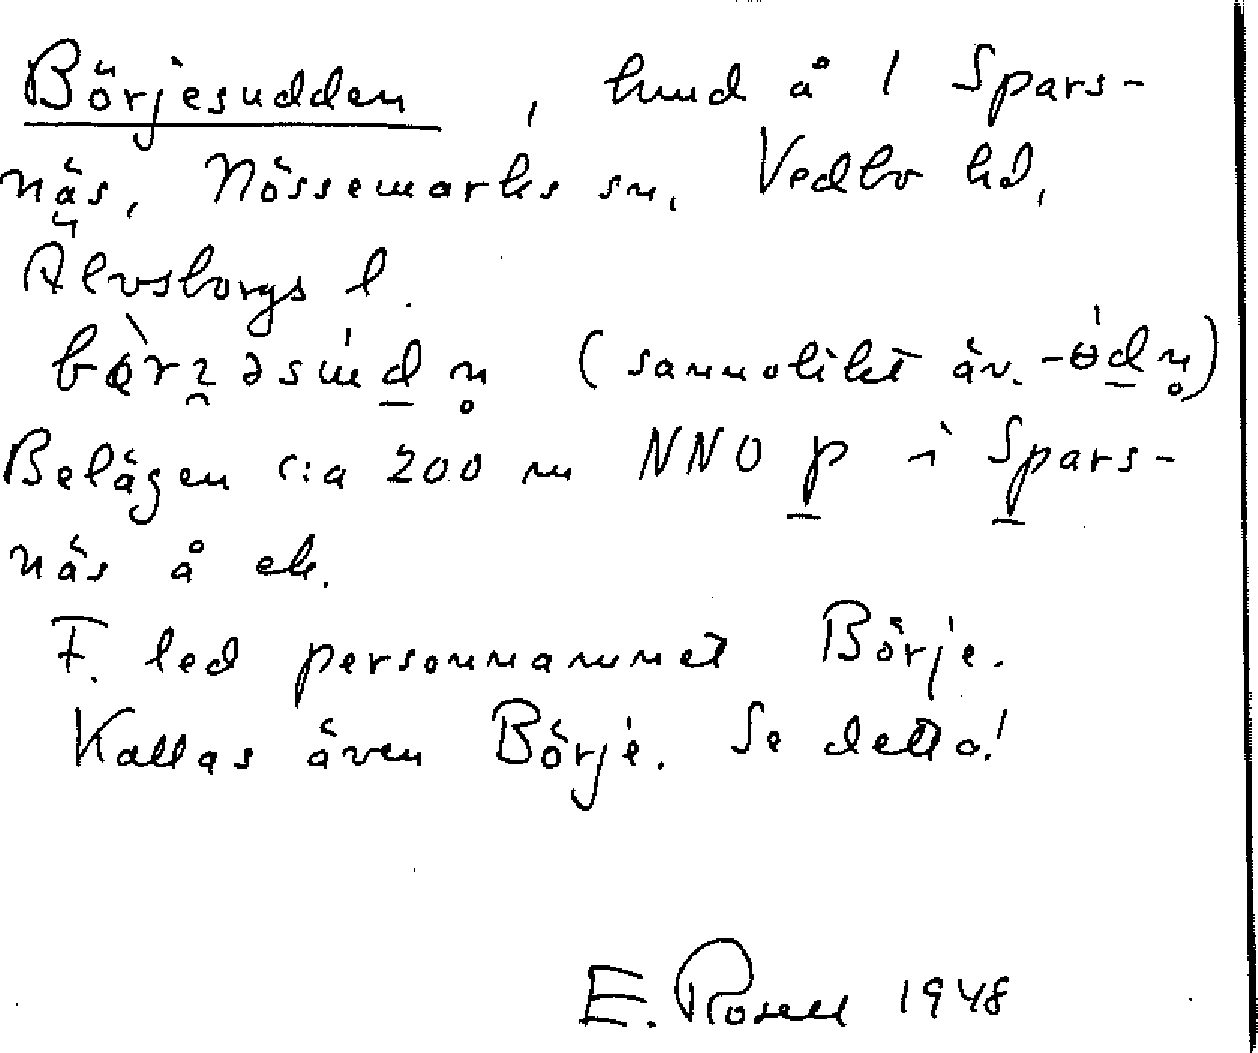 Börjesudden, lund å 1 Spars-
näs, Nössemarks sn, Vedbo hd,
Älvsborgs l.
(sannolikt äv.
Belägen c:a 200 m NNO p i Spars-
näs å ek.
F. led personnamnet Börje.
Kallas även Börje. Se detta!
E. Rosell 1948